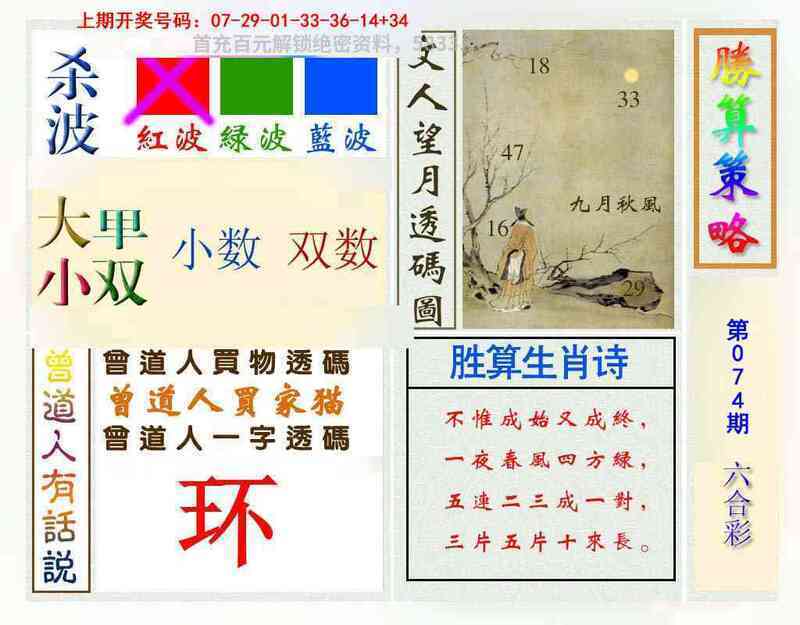 上期开奖号码：07-29-01-33-36-14+34
首充百元解锁绝密资料，
杀波
紅波
緑波
藍波
大小
甲双
小数
双数
曾道人有話説
曾道人買物透碼
曾道人買家猫
曾道人一字透碼
环
文人望月透碼圖
18
33
47
九月秋風
16
29
胜算生肖诗
不惟成始又成終，
一夜春風四方緑，
五連二三成一對，
三片五片十來長。
勝算策略
第074期
六合彩